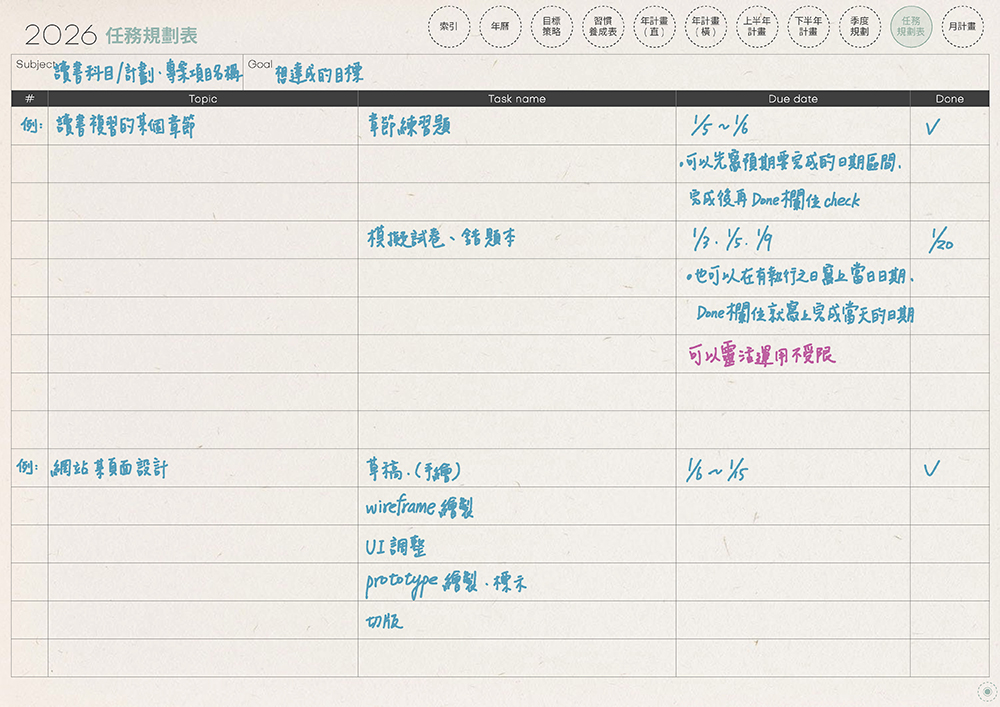 2026 任務規劃表
索引
年曆
目標
策略
習慣
養成表
年計畫
(直)
年計畫
(橫)
上半年
計畫
下半年
計畫
季度
規劃
任務
規劃表
月計畫
Subject 讀書科目/計劃.專案項目名稱 Goal 想達成的目標
# Topic Task name Due date Done
例: 讀書複習的某個章節 章節練習題 1/5~1/6 ✓
•可以先寫預期要完成的日期區間.
完成後再Done欄位check
模擬試卷、錯題本 1/3.1/5.1/9 1/20
•也可以在有執行之日寫上當日日期.
Done欄位就寫上完成當天的日期
可以靈活運用不受限
例: 網站某頁面設計 草稿.(手繪) 1/6~1/15 ✓
wireframe繪製
UI調整
prototype繪製.標示
切版